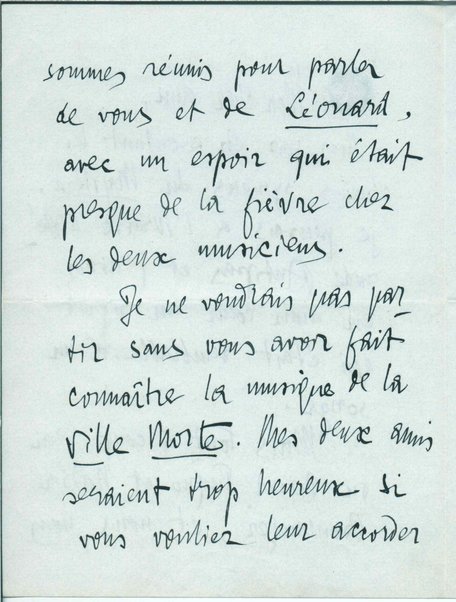 sommes réunis pour parler
de vous et de Léonard,
avec un espoir qui était
presque de la fièvre chez
les deux musiciens.
Je ne voudrais pas par-
tir sans vous avoir fait
connaître la musique de la
Ville Morte. Mes deux amis
seraient trop heureux si
vous vouliez leur accorder